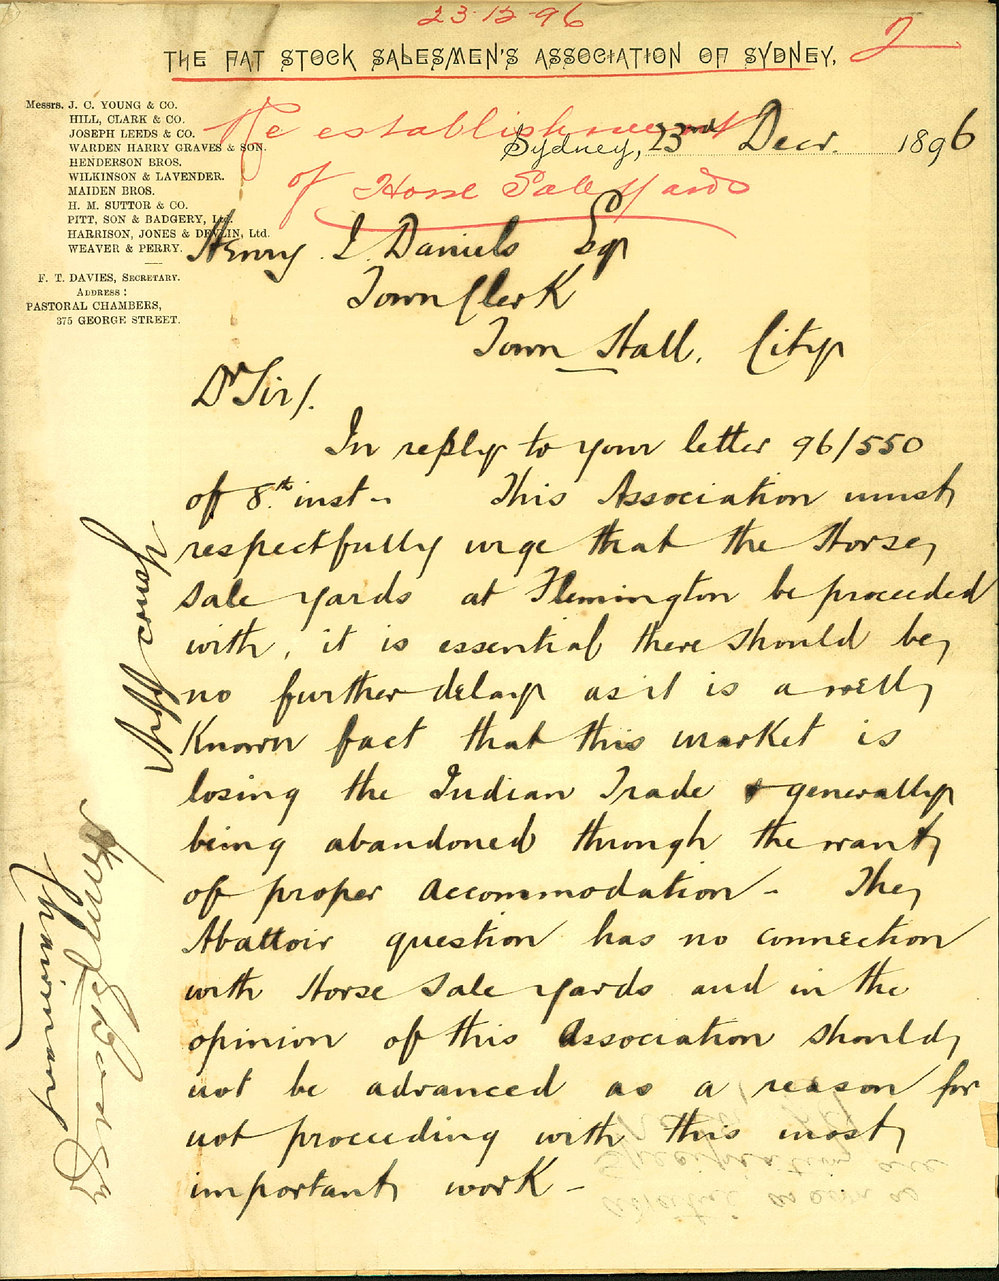 23-12-96
2
THE FAT STOCK SALESMEN'S ASSOCIATION OF SYDNEY.
Messrs. J. C. YOUNG & CO.
HILL, CLARK & CO.
JOSEPH LEEDS & CO.
WARDEN HARRY GRAVES & SON.
HENDERSON BROS.
WILKINSON & LAVENDER.
MAIDEN BROS.
H. M. SUTTOR & CO.
PITT, SON & BADGERY, Ltd.
HARRISON, JONES & DEVLIN, Ltd.
WEAVER & PERRY.
F. T. DAVIES, SECRETARY.
ADDRESS:
PASTORAL CHAMBERS,
375 GEORGE STREET.
Re establishment
of Horse Sale Yards
Sydney, 23rd Decr. 1896
Henry J. Daniels Esq
Town Clerk
Town Hall, City
Dr Sir/.
In reply to your letter 96/550
of 8th inst- This Association must
respectfully urge that the Horse
sale yards at Flemington be proceeded
with, it is essential there should be
no further delay as it is a well
known fact that this market is
losing the Indian Trade & generally
being abandoned through the want
of proper accommodation - The
Abattoir question has no connection
with Horse sale yards and in the
opinion of this Association should
not be advanced as a reason for
not proceeding with this most
important work -
Chairman